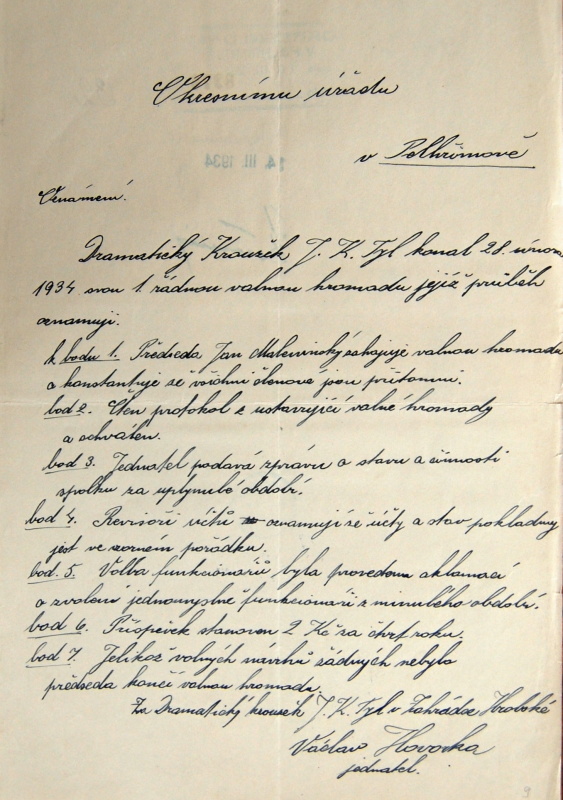 Okresnímu úřadu
v Pelhřimově
Oznámení.
Dramatický Kroužek J. K. Tyl konal 28. února
1934 svou 1 řádnou valnou hromadu jejíž průběh
oznamuji.
k bodu 1. Předseda Jan zahajuje valnou hromadu
a konstantuje že všichni členové jsou přítomni.
bod 2. Čten protokol z ustavující valné hromady
a schválen.
bod 3. Jednatel podává zprávu o stavu a činnosti
spolku za uplynulé období.
bod 4. Revisoři účtů oznamují že účty a stav pokladny
jest ve vzorném pořádku.
bod. 5. Volba funkcionářů byla provedena aklamací
a zvoleni jednomyslně funkcionáři z minulého období.
bod 6. Příspěvek stanoven 2 Kč za čtvrt roku.
bod 7. Jelikož volných návrhů žádných nebylo
předseda končí valnou hromadu.
Za Dramatický kroužek J. K. Tyl v Zahrádce
Václav Hovorka
jednatel.
4. III. 1934
9